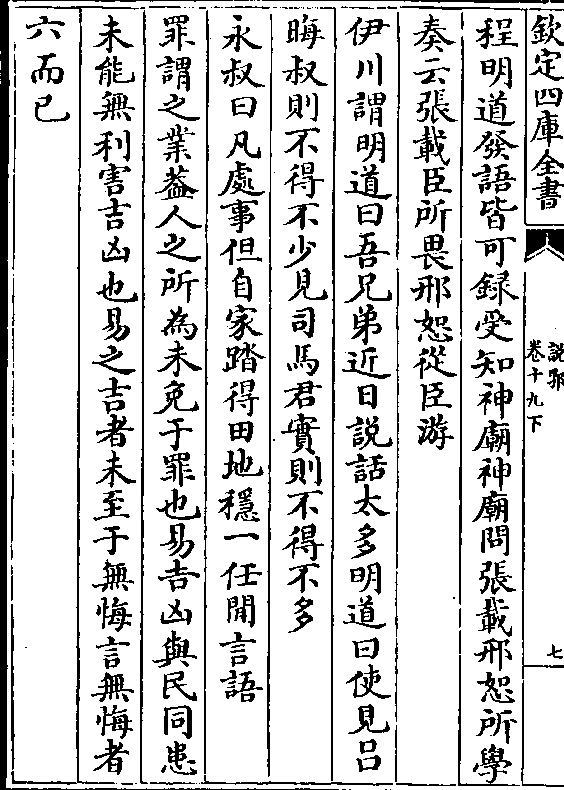 欽定四庫全書
說郛
卷十九下
七
程明道發語皆可録受知神廟神廟問張載邢恕所學
奏云張載臣所畏邢恕從臣游
伊川謂明道曰吾兄弟近日說話太多明道曰使見吕
晦叔則不得不少見司馬君實則不得不多
永叔曰凡處事但自家踏得田地穩一任閒言語
罪謂之業葢人之所為未免于罪也易吉凶與民同患
未能無利害吉凶也易之吉者未至于無悔言無悔者
六而已